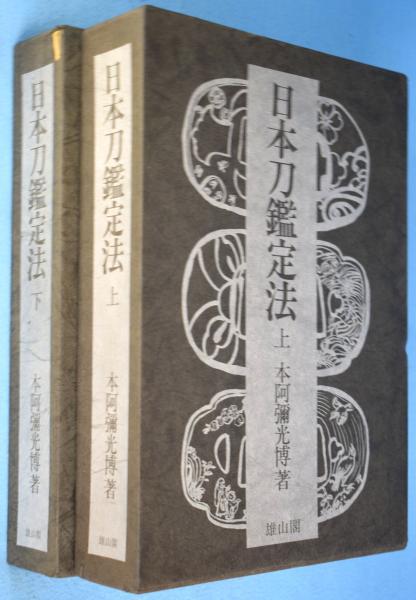 日本刀鑑定法 上
本阿彌光博著
雄山閣
日本刀鑑定法 上
本阿彌光博著
雄山閣
日本刀鑑定法 下
本阿彌光博著
雄山閣